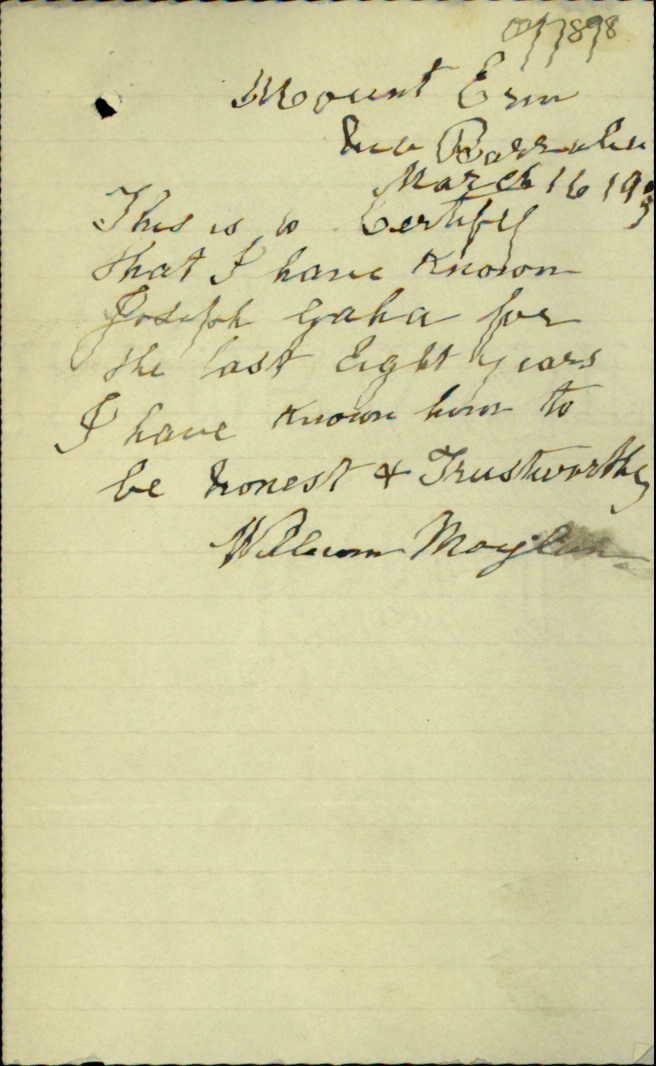 Mount Erin
March 16 190
This is to Certify
that I have Known
Joseph Gaha for
the last Eight years
I have Known him to
be honest & Trustworthy
William